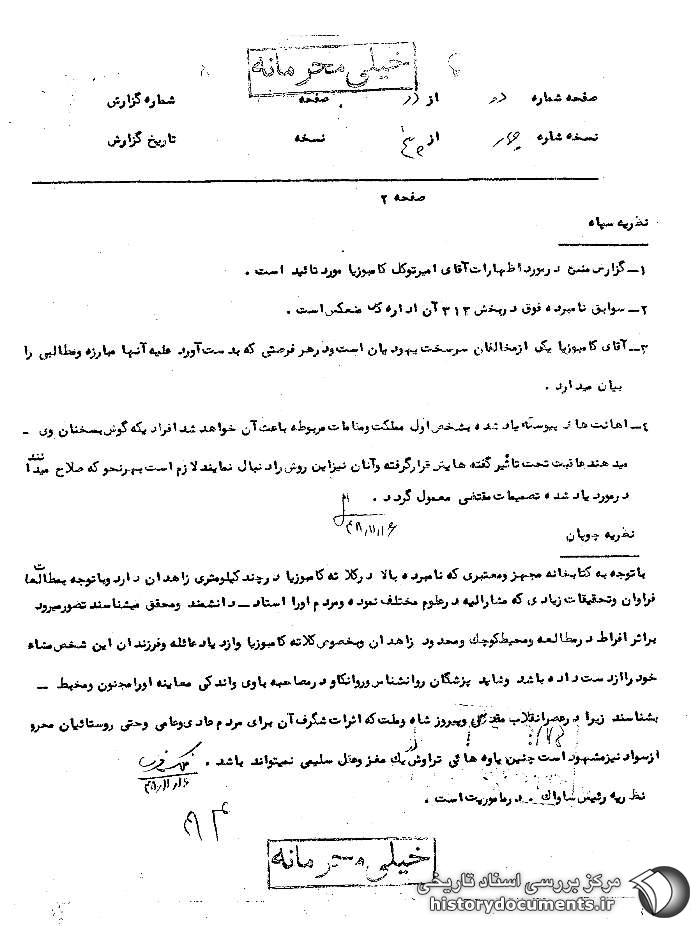 خیلی محرمانه
صفحه شماره دو از دو صفحه شماره گزارش
نسخه شماره چهار از نسخه تاریخ گزارش
صفحه ۲
نظریه سپاه
۱ــ گزارش منبع درمورد اظهارات آقای امیرتوکل کامبوزیا مورد تائید است .
۲ــ سوابق نامبرده فوق دربخش ۳۱۲ آن اداره کل منعکس است .
۳ــ آقای کامبوزیا یکی ازمخالفان سرسخت یهودیان است ودرهر فرصتی که بدست آورد علیه آنها مبارزه ومطالبی را
بیان میدارد .
٤ــ اهانت های پیوسته یاد شده بشخص اول مملکت ومقامات مربوطه باعث آن خواهد شد افراد یکه گوش بسخنان وی ــ
میدهند عاقبت تحت تاثیر گفته هایش قرارگرفته وآنان نیزاین روش را دنبال نمایند لازم است بهرنحو که صلاح میدانند
درمورد یاد شده تصمیمات مقتضی معمول گردد .
۴۸/۱۱/۱۶
نظریه چوپان
باتوجه به کتابخانه مجهز ومعتبری که نامبرده بالا درکلاته کامبوزیا درچند کیلومتری زاهدان دارد وباتوجه بمطالعات
فراوان وتحقیقات زیادی که مشارالیه درعلوم مختلف نموده ومردم اورا استاد ــ دانشمند ومحقق میشناسند تصورمیرود
براثر افراط درمطالعه ومحیط کوچک ومحدود زاهدان وبخصوص کلاته کامبوزیا وازدیاد عائله وفرزندان این شخص مشاء
خودرا ازدست داده باشد وشاید پزشگان روانشناس وروانکاو درمصاحبه باوی واندکی معاینه اورا مجنون ومخبط ــ
بشناسند زیرا درعصرانقلاب مقدس وپیروز شاه وملت که اثرات شگرف آن برای مردم عادی وعامی وحتی روستائیان محرو
ازسواد نیزمشهود است چنین یاوه هائی تراوش یک مغز وعقل سلیمی نمیتواند باشد .
۴۸/۱۱/۱۶
نظریه رئیس ساواک . درماموریت است .
خیلی محرمانه
مرکز بررسی اسناد تاریخی
historydocuments.ir